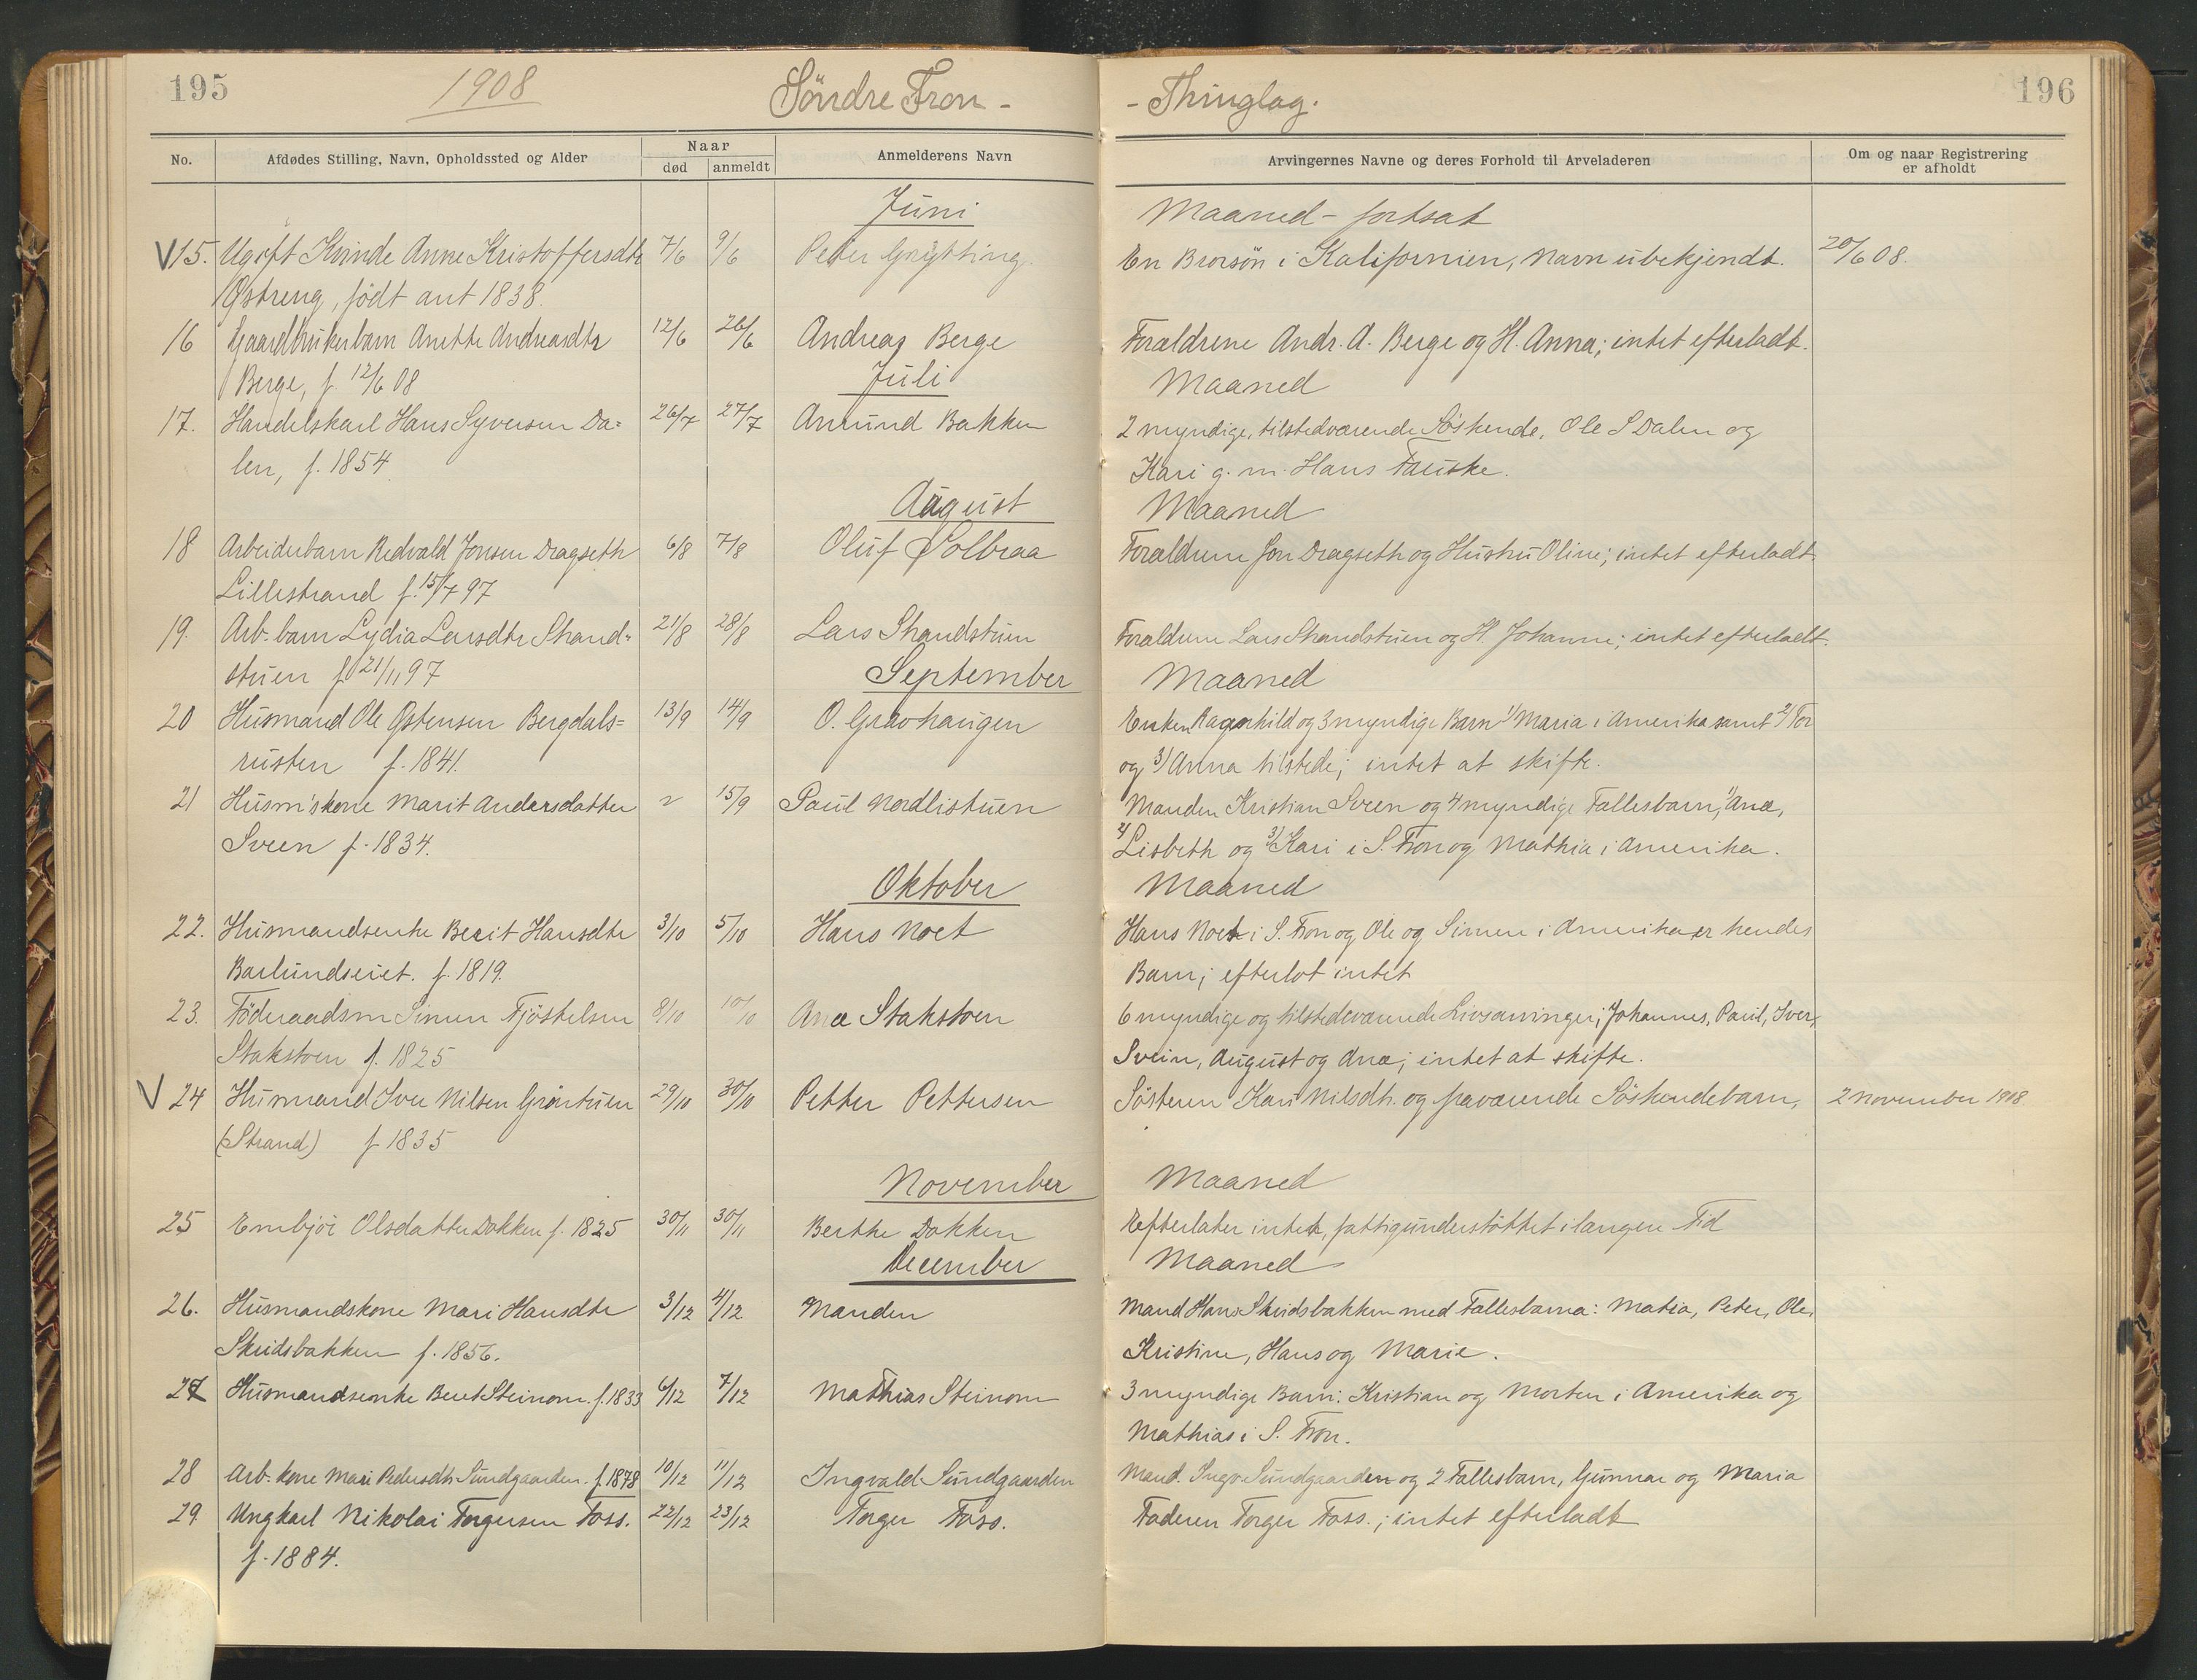 195
1908
Söndre Fron -
- Thinglag.
196
No.
Afdødes Stilling, Navn, Opholdssted og Alder
Naar
død
anmeldt
Anmelderens Navn
Arvingernes Navne og deres Forhold til Arveladeren
Om og naar Registrering
er afholdt
Juni
Maaned - fortsat
V 15. Ugift Kvinde Anne Kristoffersdtr 7/6 9/6 Peter Grytting. En Brorsön i Kalifornien, Navn ubekjendt. 20/6 08.
Østreng, født ant 1838.
16 Gaardbrukerbarn Anette Andreasdtr 12/6 26/6 Andreas Berge Forældrene Andr. A. Berge og H. Anna; intet efterladt.
Berge, f. 12/6 08
Juli Maaned
17. Handelskarl Hans Syversen Da= 26/7 27/7 Amund Bakken 2 myndige, tilstedværende Søskende, Ole S Dalen og
len, f. 1854. Kari g. m. Hans Fauske.
August Maaned
18 Arbeiderbarn Redvald Jonsen Dragseth 6/8 7/8 Oluf Solbraa Forældrene Jon Dragseth og Hustru Oline; intet efterladt.
Lillestrand f. 15/7 97
19. Arb. barn Lydia Larsdtr Strand= 21/8 28/8 Lars Strandstuen Forældrene Lars Strandstuen og H. Johanne; intet efterladt.
stuen f 21/11 97
September Maaned
20 Husmand Ole Østensen Bergdals= 13/9 14/9 O. Gravhaugen Enken Ragnhild og 3 myndige Barn 1/ Maria i Amerika samt 2/ Tor
rusten f. 1841. og 3/ Anna tilstede; intet at skifte.
21 Husm'skone Marit Andersdatter 15/9 Paul Nordlistuen Manden Kristian Sveen og 4 myndige Fællesbarn, 1/ Anæ,
Sveen f. 1834. 2/ Lisbeth og 3/ Kari i S. Fron og Mathia i Amerika.
Oktober Maaned
22. Husmandsenke Berit Hansdtr 3/10 5/10 Hans Noet Hans Noet i S. Fron og Ole og Simen i Amerika er hendes
Barlundseiet. f. 1819. Barn; efterlot intet
23. Föderaadsm Simen Fjöstelsen 8/10 10/10 Anæ Stakstoen 6 myndige og tilstedeværende Livsarvinger; Johannes, Paul, Iver,
Stakstoen f. 1825 Svein, August og Anæ; intet at skifte.
V 24 Husmand Iver Nilsen Grøntuen 29/10 30/10 Petter Pettersen Søsteren Kari Nilsdtr. og fraværende Søskendebarn, 2 November 1908.
(Strand) f 1835
November Maaned
25 Embjör Olsdatter Dokken f. 1825 30/11 30/11 Berthe Dokken Efterlater intet, fattigunderstöttet i langen Tid
December Maaned
26. Husmandskone Mari Hansdtr 3/12 4/12 Manden Mand Hans Skridsbakken med Fællesbarna: Matia, Peter, Ole,
Skridsbakken f. 1856. Kristine, Hans og Marie.
27 Husmandsenke Berit Steinom. f. 1833 6/12 7/12 Mathias Steinom 3 myndige Barn: Kristian og Morten i Amerika og
Mathias i S. Fron.
28 Arb. kone Mari Pedersdtr Sundgaarden. f. 1878 10/12 11/12 Ingvald Sundgaarden Mand. Ingv. Sundgaarden og 2 Fællesbarn, Gunnar og Maria
29 Ungkarl Nikolai Torgersen Foss. 22/12 23/12 Torger Foss. Faderen Torger Foss.; intet efterladt
f. 1884.